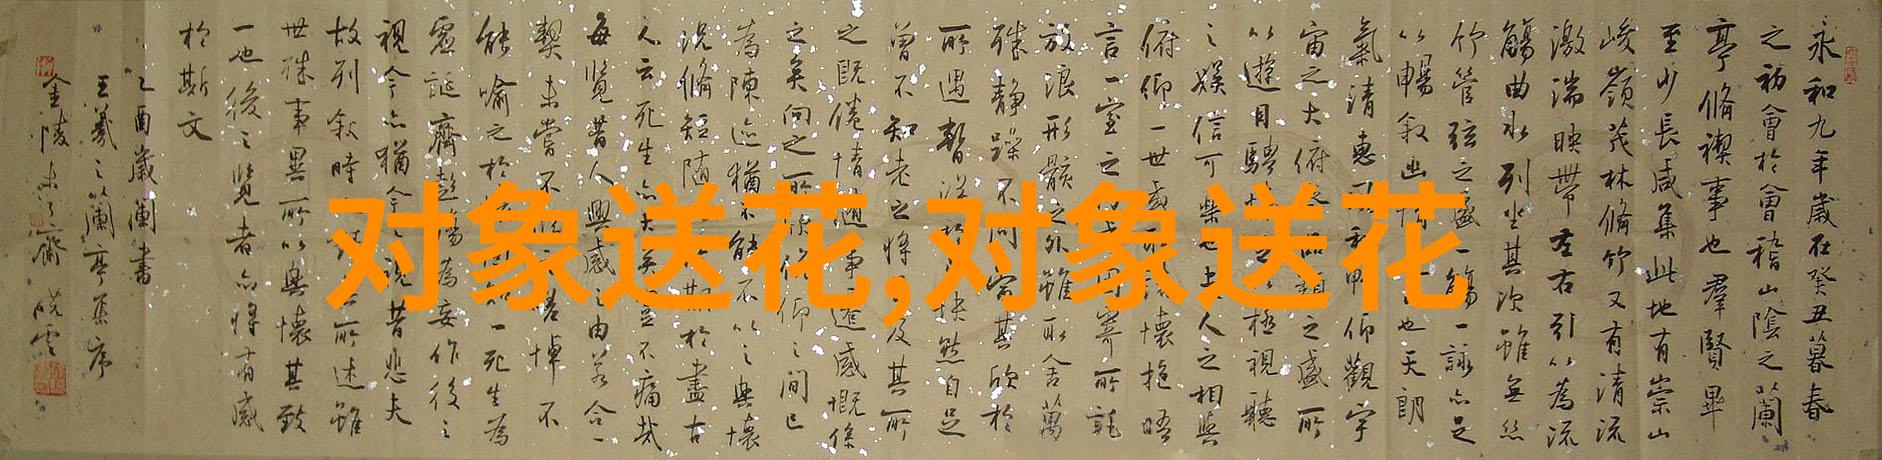 永和九年歲在癸丑暮春
之初會於會稽山陰之蘭
亭脩禊事也羣賢畢
至少長咸集此地有崇山
峻嶺茂林脩竹又有清流
激湍映帶左右引以為流
觴曲水列坐其次雖無絲
竹管弦之盛一觴一詠亦足
以暢敘幽情也天朗
氣清惠風和仰觀宇
宙之大俯品類之盛所
以遊目騁以極視聽
之娛信可樂也人之相與
俯仰一世或懷抱晤
言一室之寄所託
放浪形骸之外雖取舍萬
殊靜躁不同當其欣於
所遇暫得於快然自足
曾不知老之將及其所
之既倦情隨事遷感慨係
之矣向之所欣俯仰之間已
為陳迹猶不能不以之興懷
況脩短隨期於盡古
人云死生亦大矣豈不痛哉
每覽昔人興感之由若合一
契未嘗不嗟悼不
能喻之於知一死生為
虛誕齊彭殤為妄作後之
視今亦猶今之視昔悲夫
故列敘時所述雖
世殊事異所以興懷其致
一也後之覽者亦將有感
於斯文
乙酉歲蘭書
王羲之以蘭亭集序
金陵齋
对象送花,对象送花